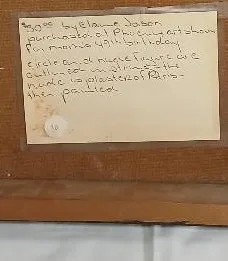 $30.00 by Elaine Jason
purchased at Phil art show
for moms 49th birthday
circle and nude figure are
outlined
nude is plaster of Paris -
then painted